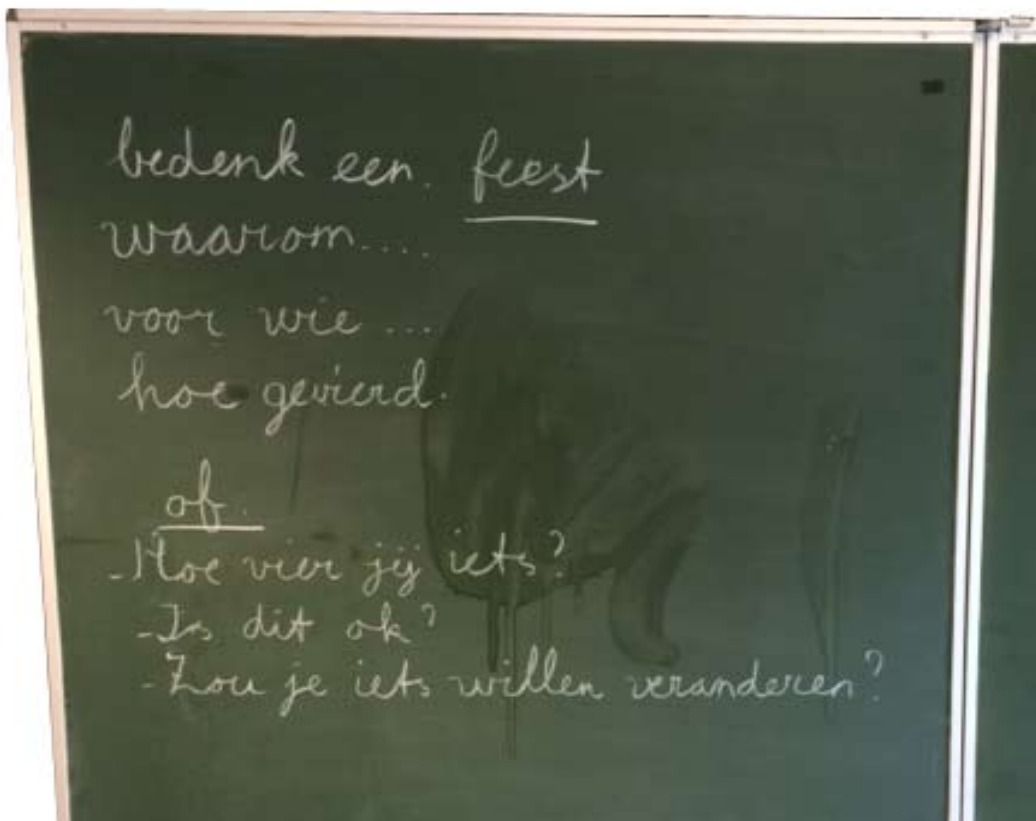 bedenk een. feest
waarom....
voor wie ...
hoe gevierd.
of.
-Hoe vier jij iets?
-Is dit ok?
-Zou je iets willen veranderen?